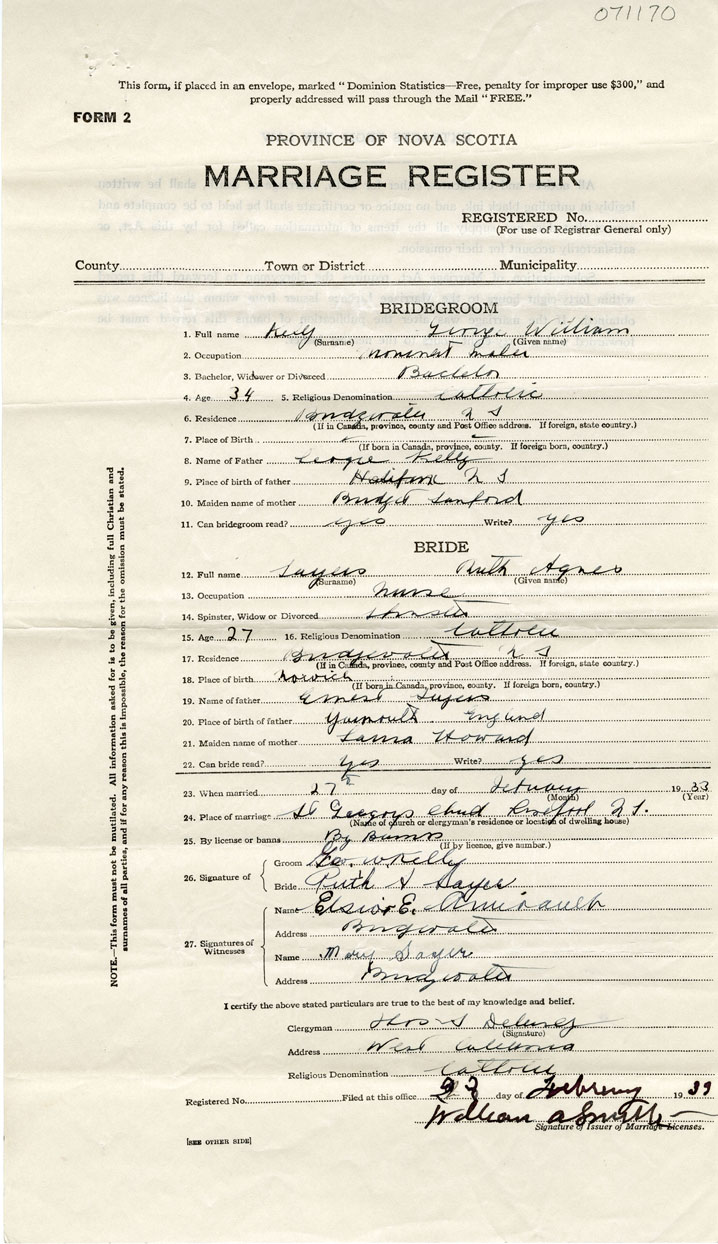 071170
This form, if placed in an envelope, marked "Dominion Statistics—Free, penalty for improper use $300," and
properly addressed will pass through the Mail "FREE."
FORM 2
PROVINCE OF NOVA SCOTIA
MARRIAGE REGISTER
REGISTERED No.
(For use of Registrar General only)
County Town or District Municipality
BRIDEGROOM
1. Full name Kelly George William
(Surname) (Given name)
2. Occupation
3. Bachelor, Widower or Divorced Bachelor
4. Age 34 5. Religious Denomination Catholic
6. Residence Bridgewater N S
(If in Canada, province, county and Post Office address. If foreign, state country.)
7. Place of Birth
(If born in Canada, province, county. If foreign born, country.)
8. Name of Father George Kelly
9. Place of birth of father Halifax N S
10. Maiden name of mother Bridget Sanford
11. Can bridegroom read? yes Write? yes
BRIDE
12. Full name Sayers Ruth Agnes
(Surname) (Given name)
13. Occupation Nurse
14. Spinster, Widow or Divorced Spinster
15. Age 27 16. Religious Denomination Catholic
17. Residence Bridgewater N S
(If in Canada, province, county and Post Office address. If foreign, state country.)
18. Place of birth Norwich
(If born in Canada, province, county. If foreign born, country.)
19. Name of father Ernest Sayers
20. Place of birth of father Yarmouth England
21. Maiden name of mother Howard
22. Can bride read? yes Write? yes
23. When married 27th day of February 1933
(Month) (Year)
24. Place of marriage St Georges Liverpool N.S.
(Name of church or clergyman's residence or location of dwelling house)
25. By license or banns By Banns
(If by licence, give number.)
26. Signature of
Groom Geo. W Kelly
Bride Ruth A Sayer
27. Signatures of
Witnesses
Name E. Amirault
Address Bridgewater
Name Mary Sayer
Address Bridgewater
I certify the above stated particulars are true to the best of my knowledge and belief.
Clergyman Thos
(Signature)
Address West Caledonia
Religious Denomination Catholic
Registered No. Filed at this office day of February 19
William A Smith
Signature of Issuer of Marriage Licenses.
[SEE OTHER SIDE]
NOTE.—This form must not be mutilated. All information asked for is to be given, including full Christian and
surnames of all parties, and if for any reason this is impossible, the reason for the omission must be stated.